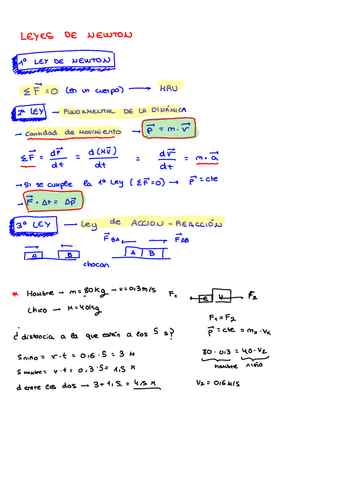 LEYES DE NEWTON
1ª LEY DE NEWTON
ΣF⃗=0 (en un cuerpo) → MRU
2ª LEY → FUNDAMENTAL DE LA DINÁMICA
→ Cantidad de movimiento → p⃗ = m · v⃗
ΣF⃗ = dp⃗/dt = d(Mv⃗)/dt = dv⃗/dt = m · a⃗
→ Si se cumple la 1ª Ley (ΣF⃗=0) → p⃗=cte
→ F⃗ · Δt = Δp⃗
3ª LEY → Ley de ACCION - REACCIÓN
F⃗BA F⃗AB
A B A B
chocan
* Hombre → m = 80kg → v = 0'3 m/s
Chico → M = 40kg
F₁ F₂
F₁ = F₂
p⃗ = cte = m₂ · v₂
¿distancia a la que están a los 5 s?
S niño = v · t = 0'6 · 5 = 3 M
S hombre = v · t = 0'3 · 5 = 1,5 M
d entre los dos → 3 + 1,5 = 4,5 M
80 · 0'3 = 40 · V₂
hombre niño
V₂ = 0'6 M/S